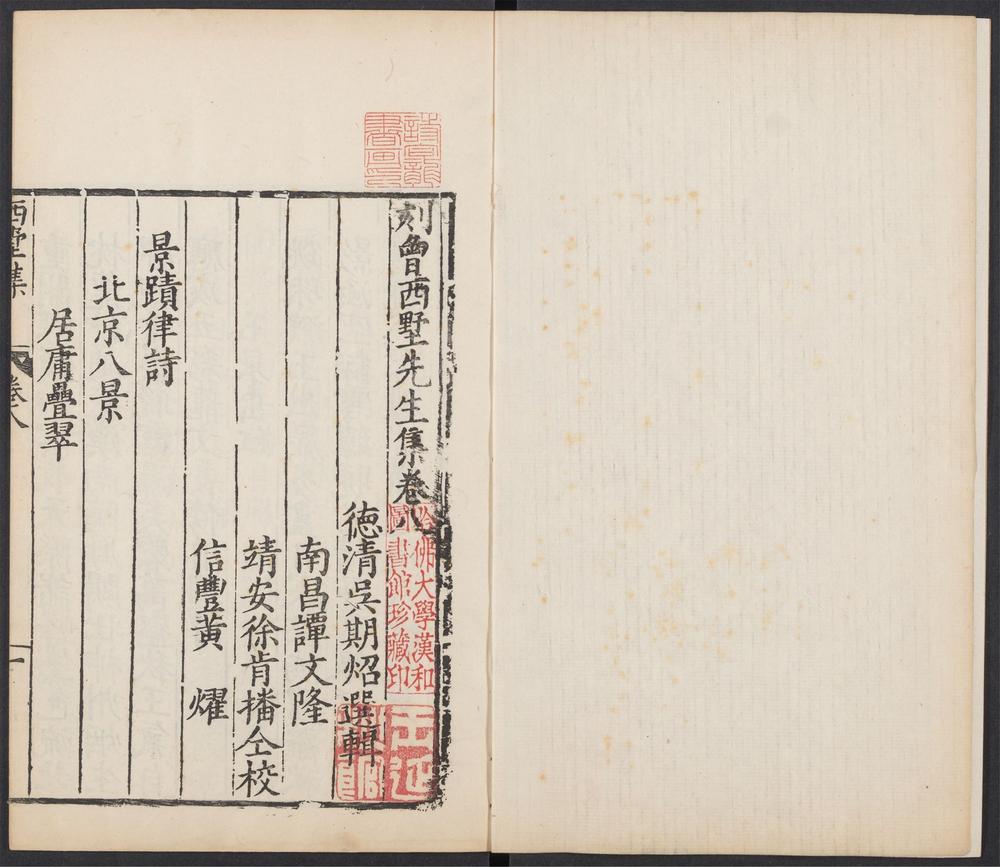 刻曾西墅先生集卷八
德清吳期炤選輯
南昌譚文隆
靖安徐肯播仝校
信豐黃　燿
景蹟律詩
北京八景
居庸疊翠
西墅集
卷八
一
哈佛大學漢和
圖書館珍藏印